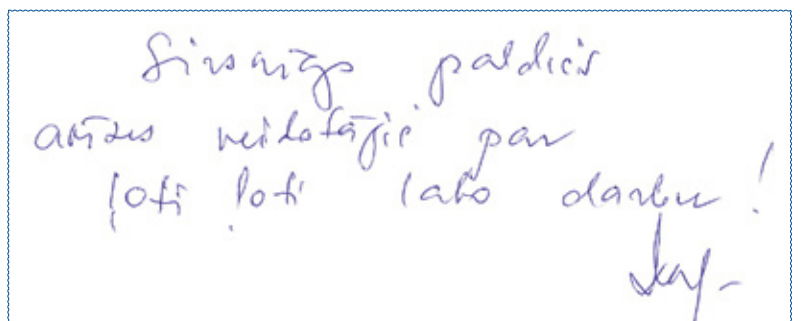 Sirsnīgs paldies
avīzes veidotājiem par
ļoti ļoti labo darbu!